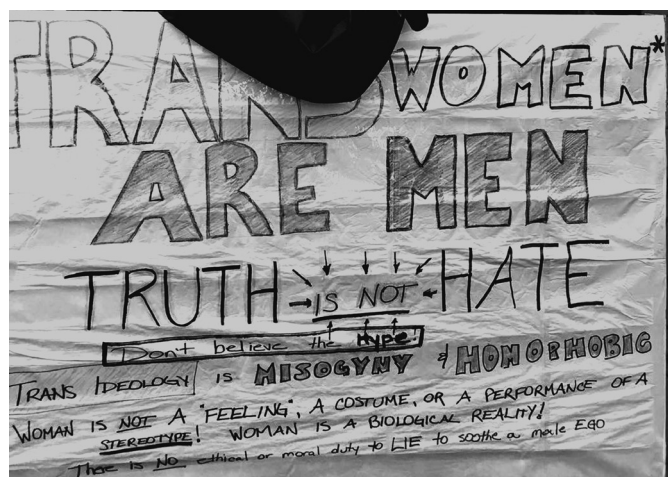 TRANS WOMEN*
ARE MEN
TRUTH IS NOT HATE
Don't believe the Hype!
TRANS IDEOLOGY IS MISOGYNY & HOMOPHOBIC
WOMAN IS NOT A "FEELING", A COSTUME, OR A PERFORMANCE OF A
STEREOTYPE! WOMAN IS A BIOLOGICAL REALITY!
There is NO ethical or moral duty to LIE to soothe a male EGO